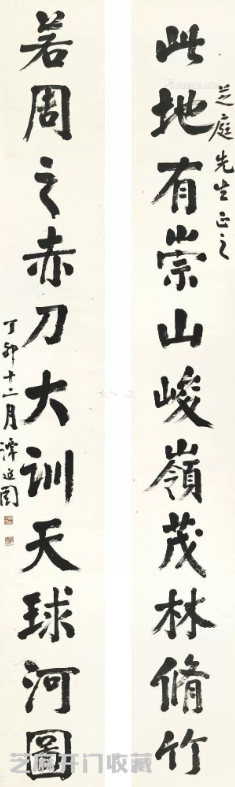 此地有崇山峻嶺茂林脩竹
芝庭先生正之
若周之赤刀大訓天球河圖
丁卯十二月譚延闓
芝麻开门收藏